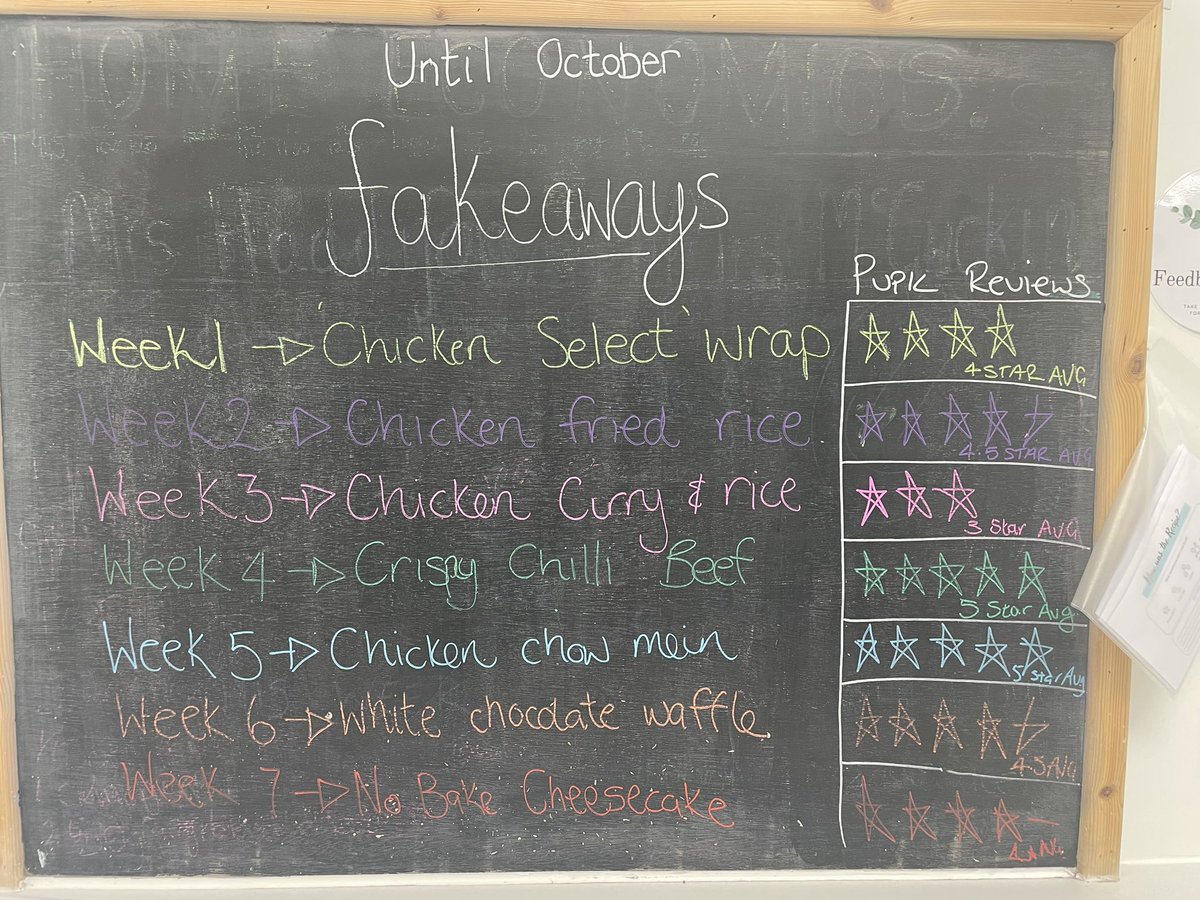 Until October
fakeaways
Pupil Reviews
Week 1 → 'Chicken Select' wrap
4 STAR AVG
Week 2 → Chicken fried rice
4.5 STAR AVG
Week 3 → Chicken Curry & rice
3 Star AVG
Week 4 → Crispy Chilli Beef
5 Star Avg
Week 5 → Chicken chow mein
5 star Avg
Week 6 → White chocolate waffle
4.5 AVG
Week 7 → No Bake Cheesecake
Feedb
TAKE
FOR
the Recipe?